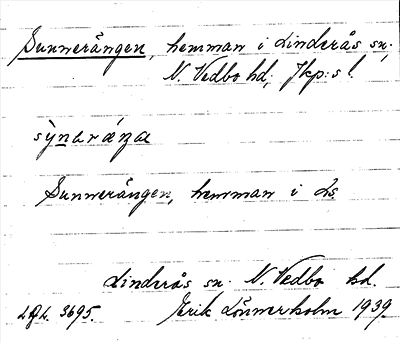 Sunnerängen, hemman i Linderås sn.
N. Vedbo hd, Jkp:s l.
Sunnerängen, hemman i Ls
Linderås sn. N. Vedbo hd.
3695. Erik Lönnerholm 1939